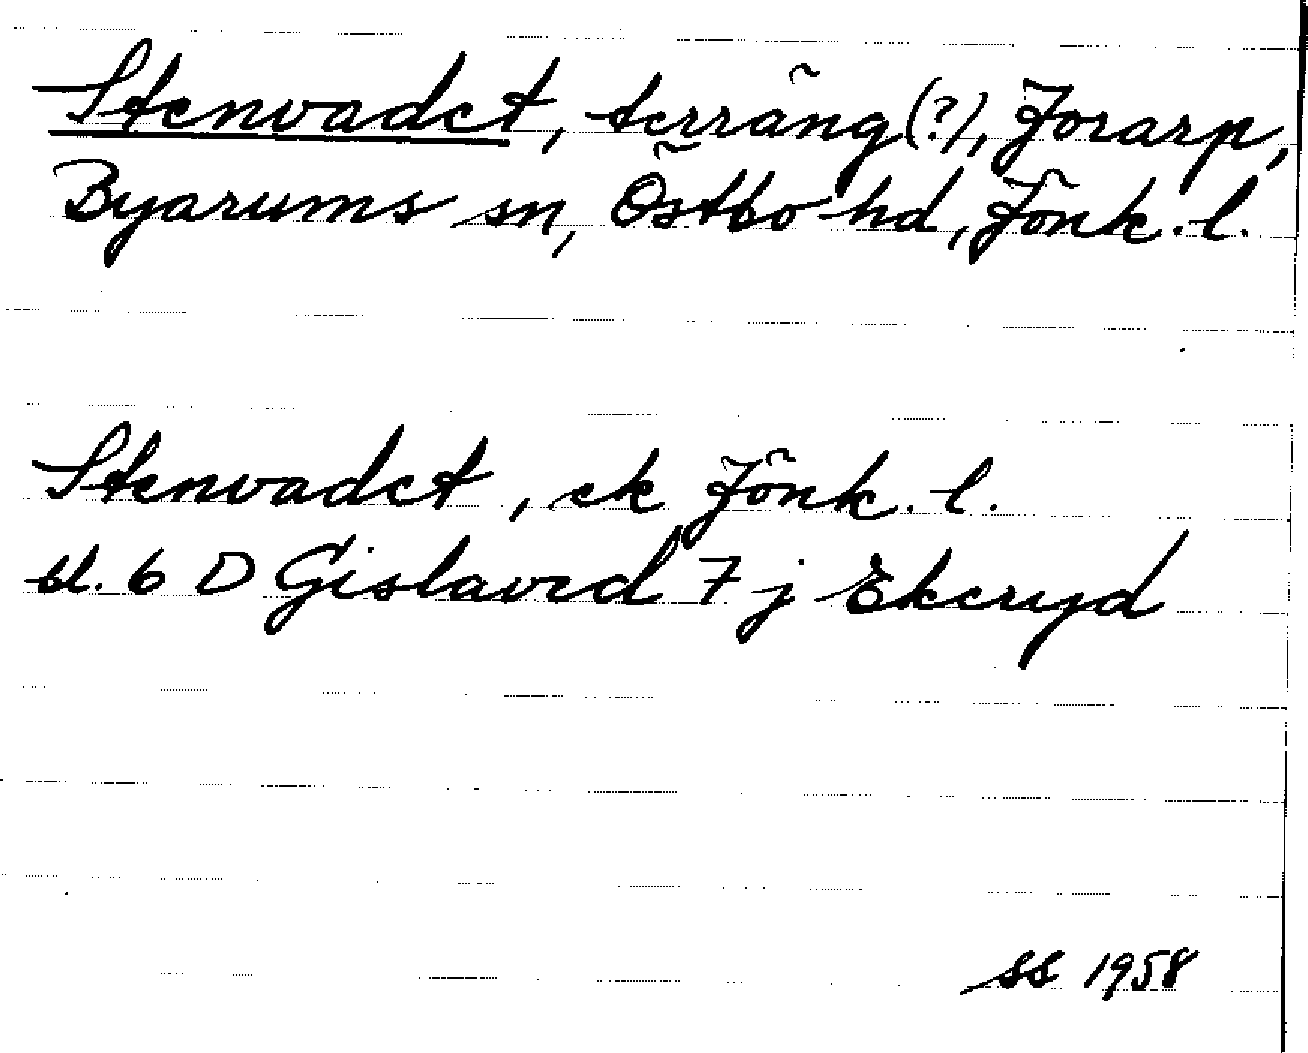 Stenvadet, terräng (?), Jorarp,
Byarums sn, Östbo hd, Jönk. l.
Stenvadet, ek Jönk. l.
bl. 6 D Gislaved 7 j Ekeryd
SS 1958